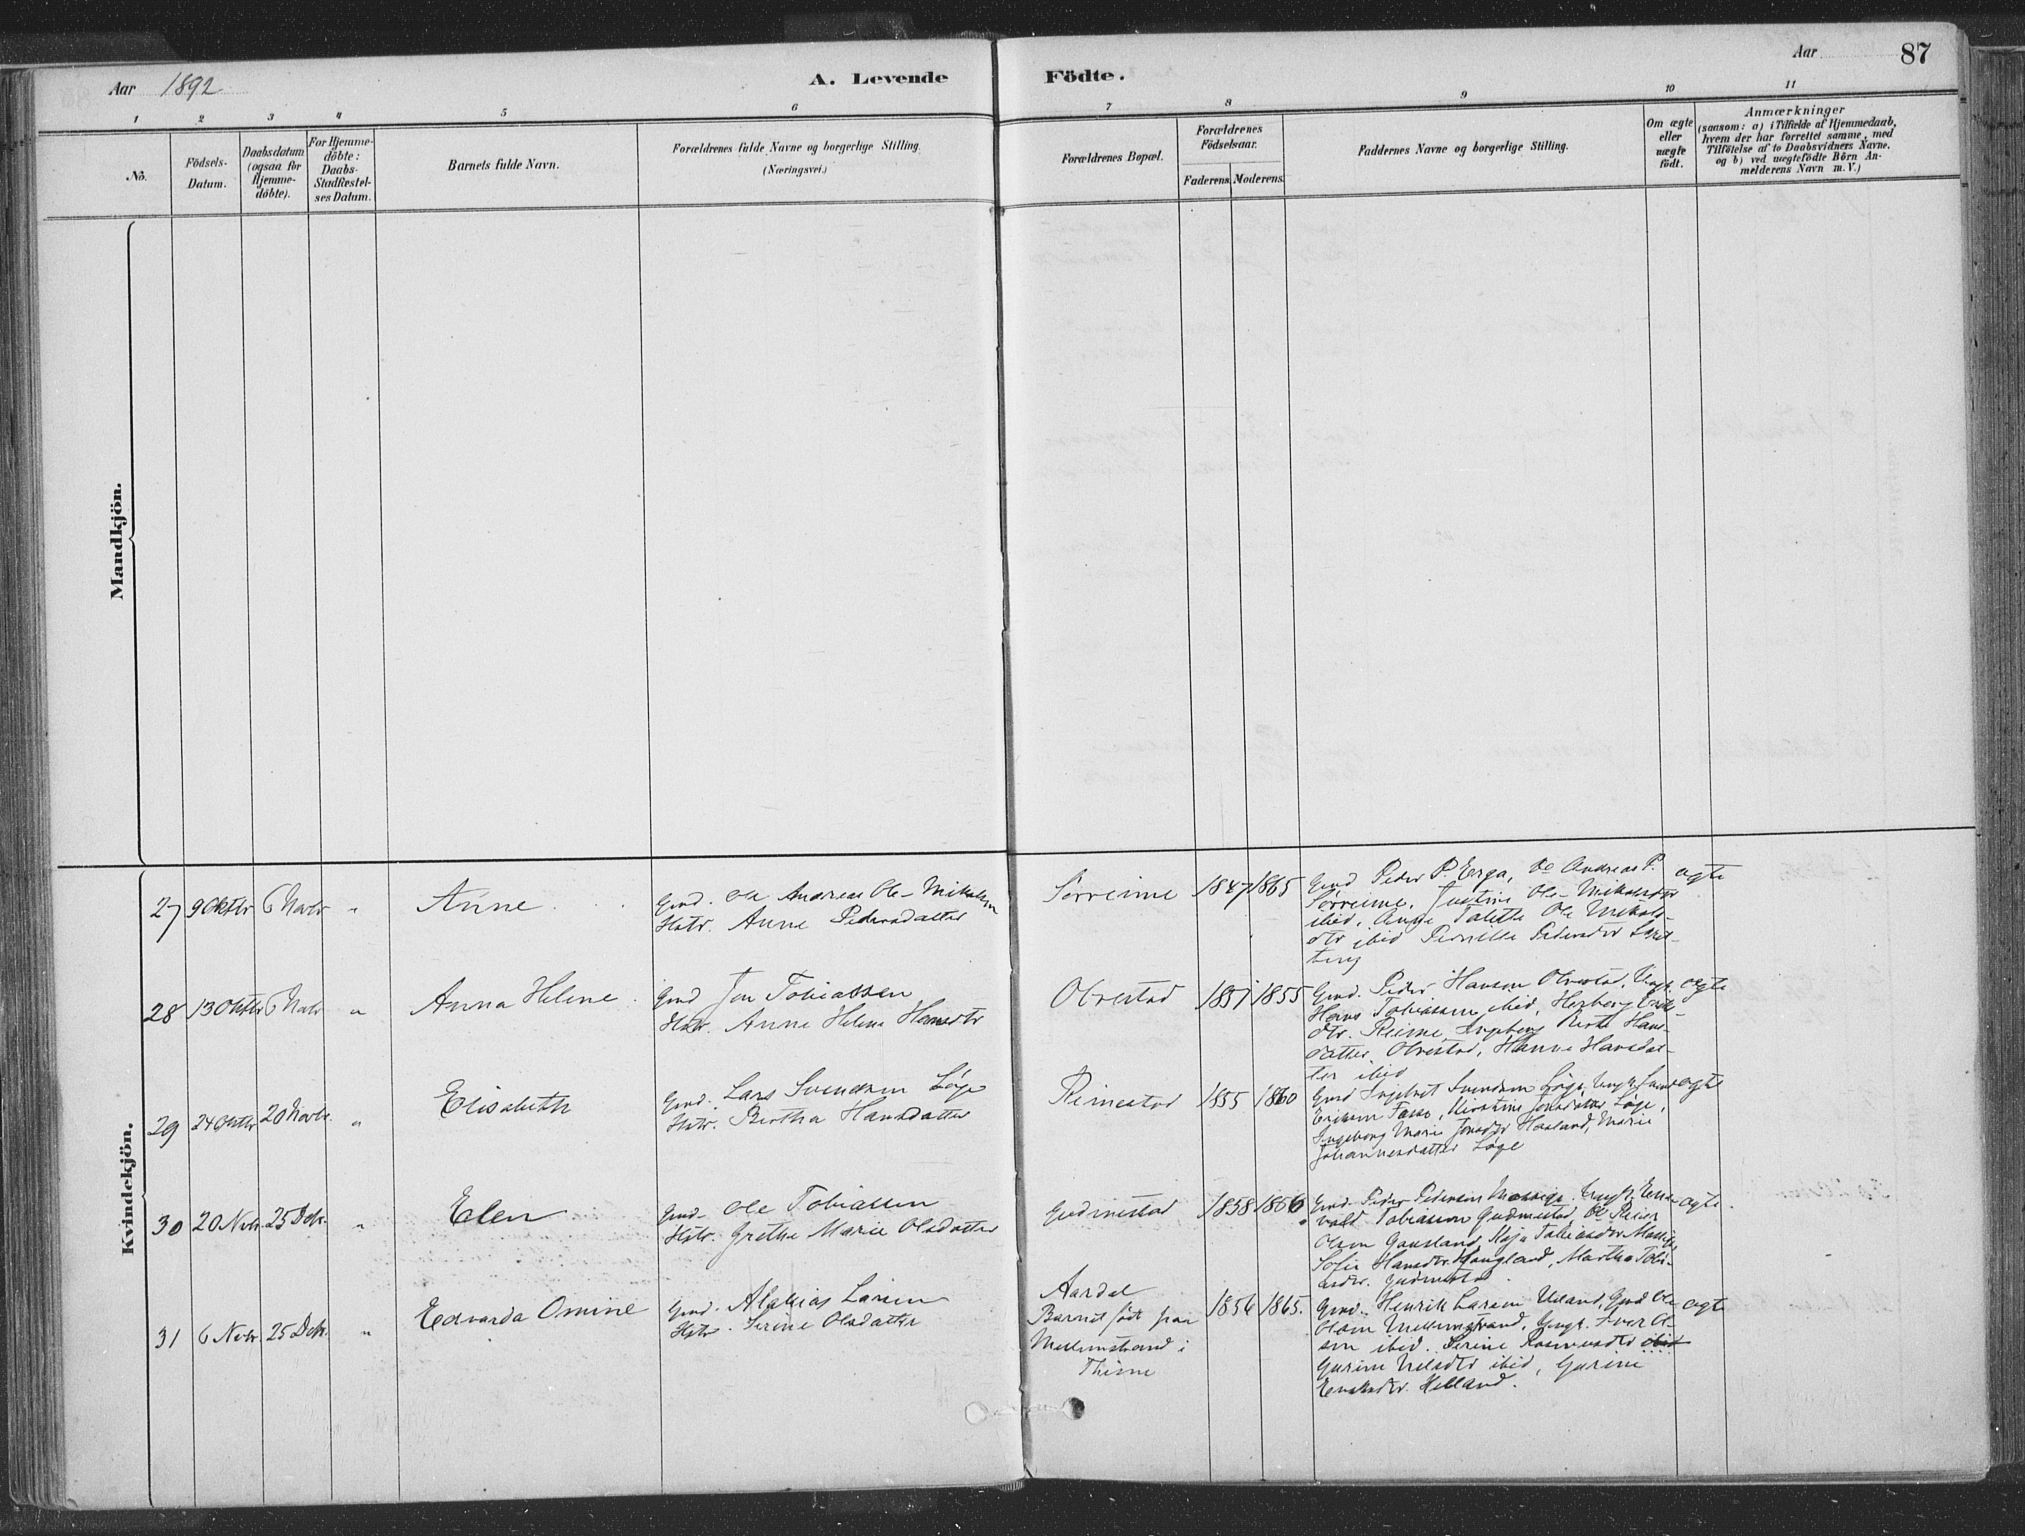 Aar 1892
A. Levende Födte.
Aar
87
1 2 3 4 5 6 7 8 9 10 11
No.
Födsels-
Datum.
Daabsdatum
(ogsaa for
Hjemme-
döbte).
For Hjemme-
döbte:
Daabs-
Stadfæstel-
ses Datum.
Barnets fulde Navn.
Forældrenes fulde Navne og borgerlige Stilling
(Næringsvei.)
Forældrenes Bopæl.
Forældrenes
Födselsaar.
Faderens. Moderens.
Faddernes Navne og borgerlige Stilling.
Om ægte
eller
uægte
födt.
Anmærkninger
(saasom: a) i Tilfælde af Hjemmedaab,
hvem der har forrettet samme, med
Tilföielse af to Daabsvidners Navne.
og b) ved uægtefödte Börn An-
melderens Navn m. V.)
Mandkjön.
Kvindekjön.
27 9 Oktbr 6 Novbr "
Anne
Gmd. Ole Andreas Ole-Mikalsen
Hstr. Anne Pedersdatter
Sørreime
1847 1865
Gmd Peder P. Erga, Ole Andreas P.
Sørreime, Justine Ole-Mikalsdtr
ibid, Anne Talette Ole Mikals-
dtr ibid Pernille Pedersdtr
ægte
28 13 Oktbr 6 Novbr "
Anna Helene
Gmd Jon Tobiassen
Hstr. Anne Helene Hansdtr
Obrestad
1851 1855
Gmd. Peder Hanson Obrestad, Ungk.
Hans Tobiassen ibid, Herborg
dtr. Reime, Ingeborg Berte Hans-
datter Obrestad, Hanne Hansdat-
ter ibid
ægte
29 24 Oktbr 20 Novbr. "
Elisabeth
Gmd. Lars Svendsen Løge
Hstr. Bertha Hansdatter
Reimestad
1855 1860
Gmd Ingebret Svendsen Løge, Ungk.
Eriksen Tasse, Kirstine Jonsdatter Løge,
Ingeborg Marie Jonsdtr Haaland, Marie
Johannesdatter Løge
ægte
30 20 Nvbr. 25 Dcbr. "
Elen
Gmd. Ole Tobiassen
Hstr. Grethe Marie Olsdatter
Gudmestad
1858 1866
Gmd. Peder Pedersen Mossige, Ungk.
vald Tobiassen Gudmestad, Ole Reier
Olsen Gausland, Maja Tobiasdtr Mossige,
Sofie Hansdtr. Haugland, Martha Tobi-
asdtr. Gudmestad.
ægte.
31 6 Nvbr. 25 Dcbr. "
Edvarda Omine
Gmd. Alakias Larsen
Hstr. Serine Olsdatter
Aardal
Barnet født paa
Mellemstrand i
Thime
1856 1865.
Gmd. Henrik Larsen Ueland, Gmd Ole
Olsen Mellemstrand, Ungk. Iver Ol-
sen ibid. Serine Rasmusdtr ibid
Gurine Nilsdtr ibid, Gurine
Helland.
ægte